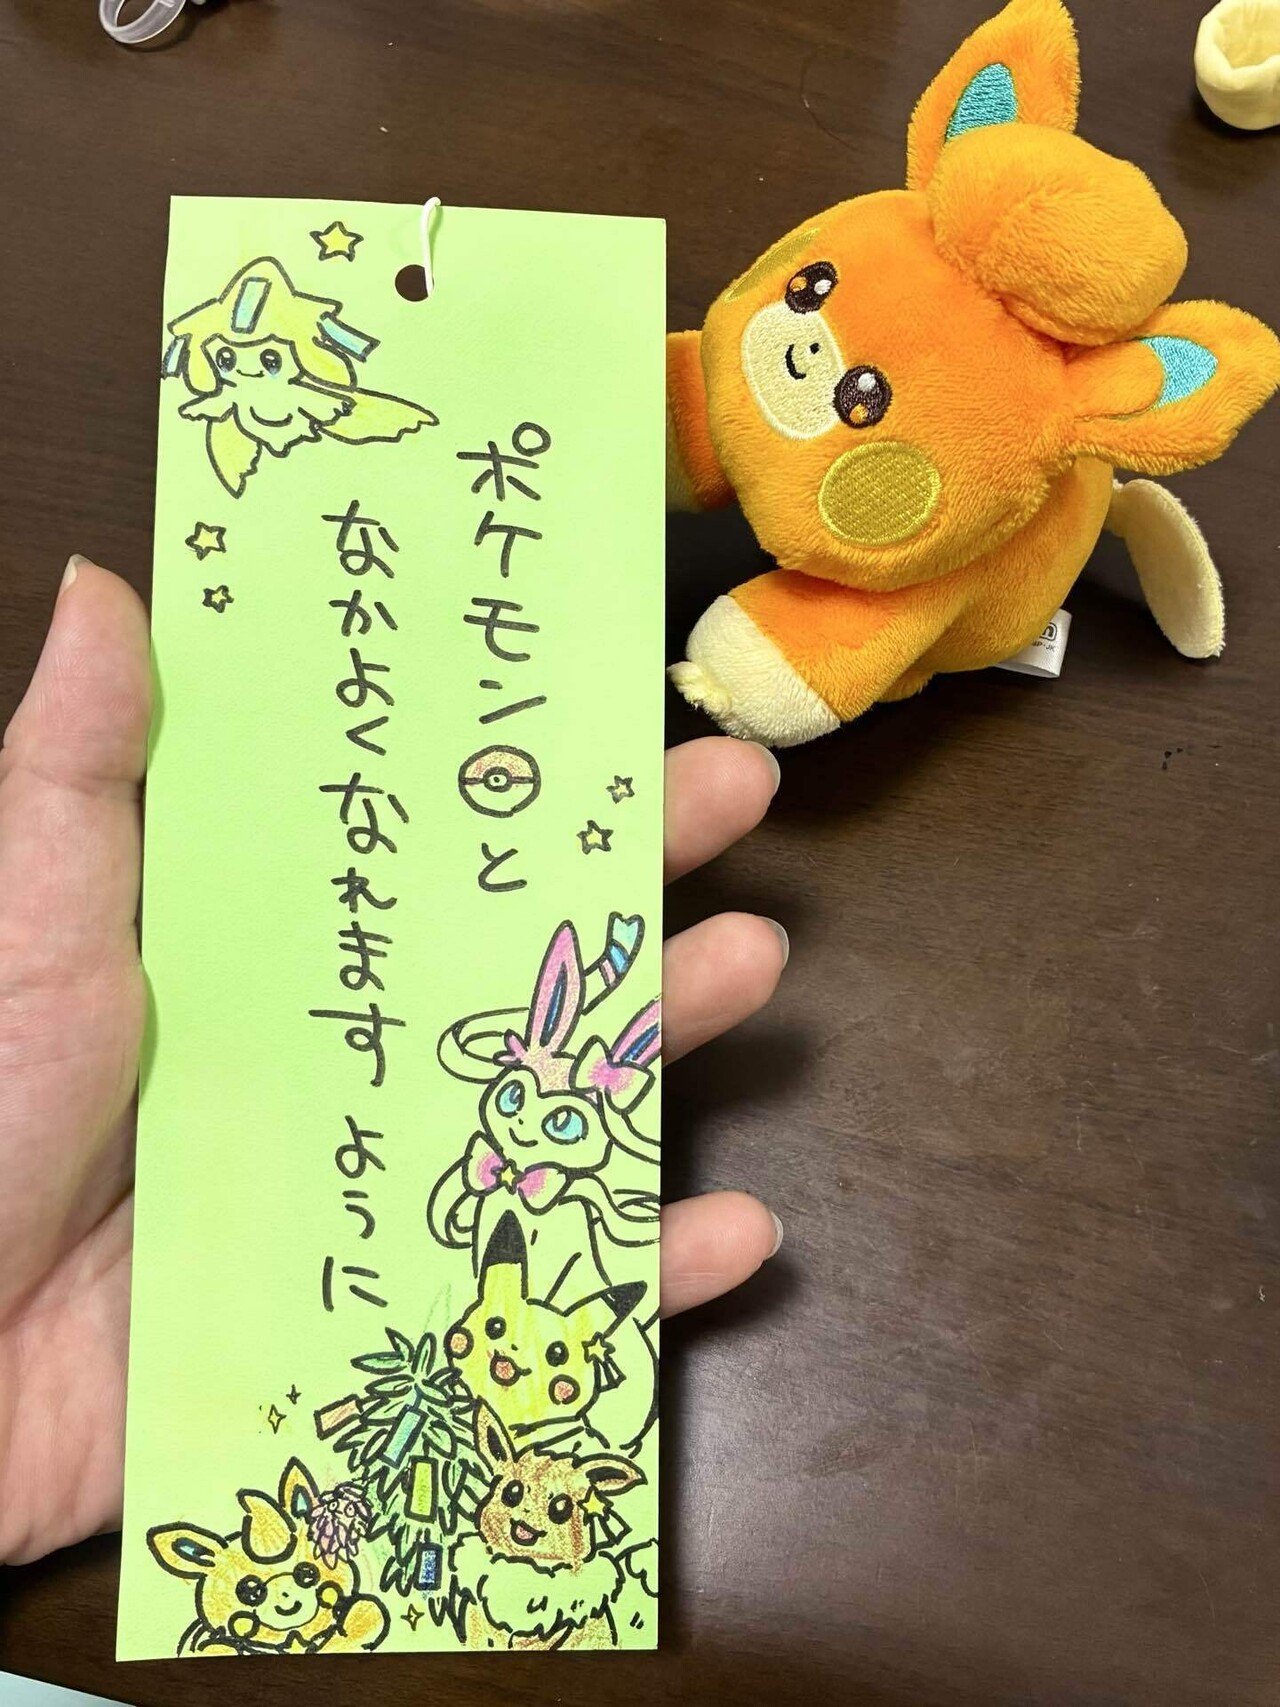 ポケモンと
なかよくなれますように